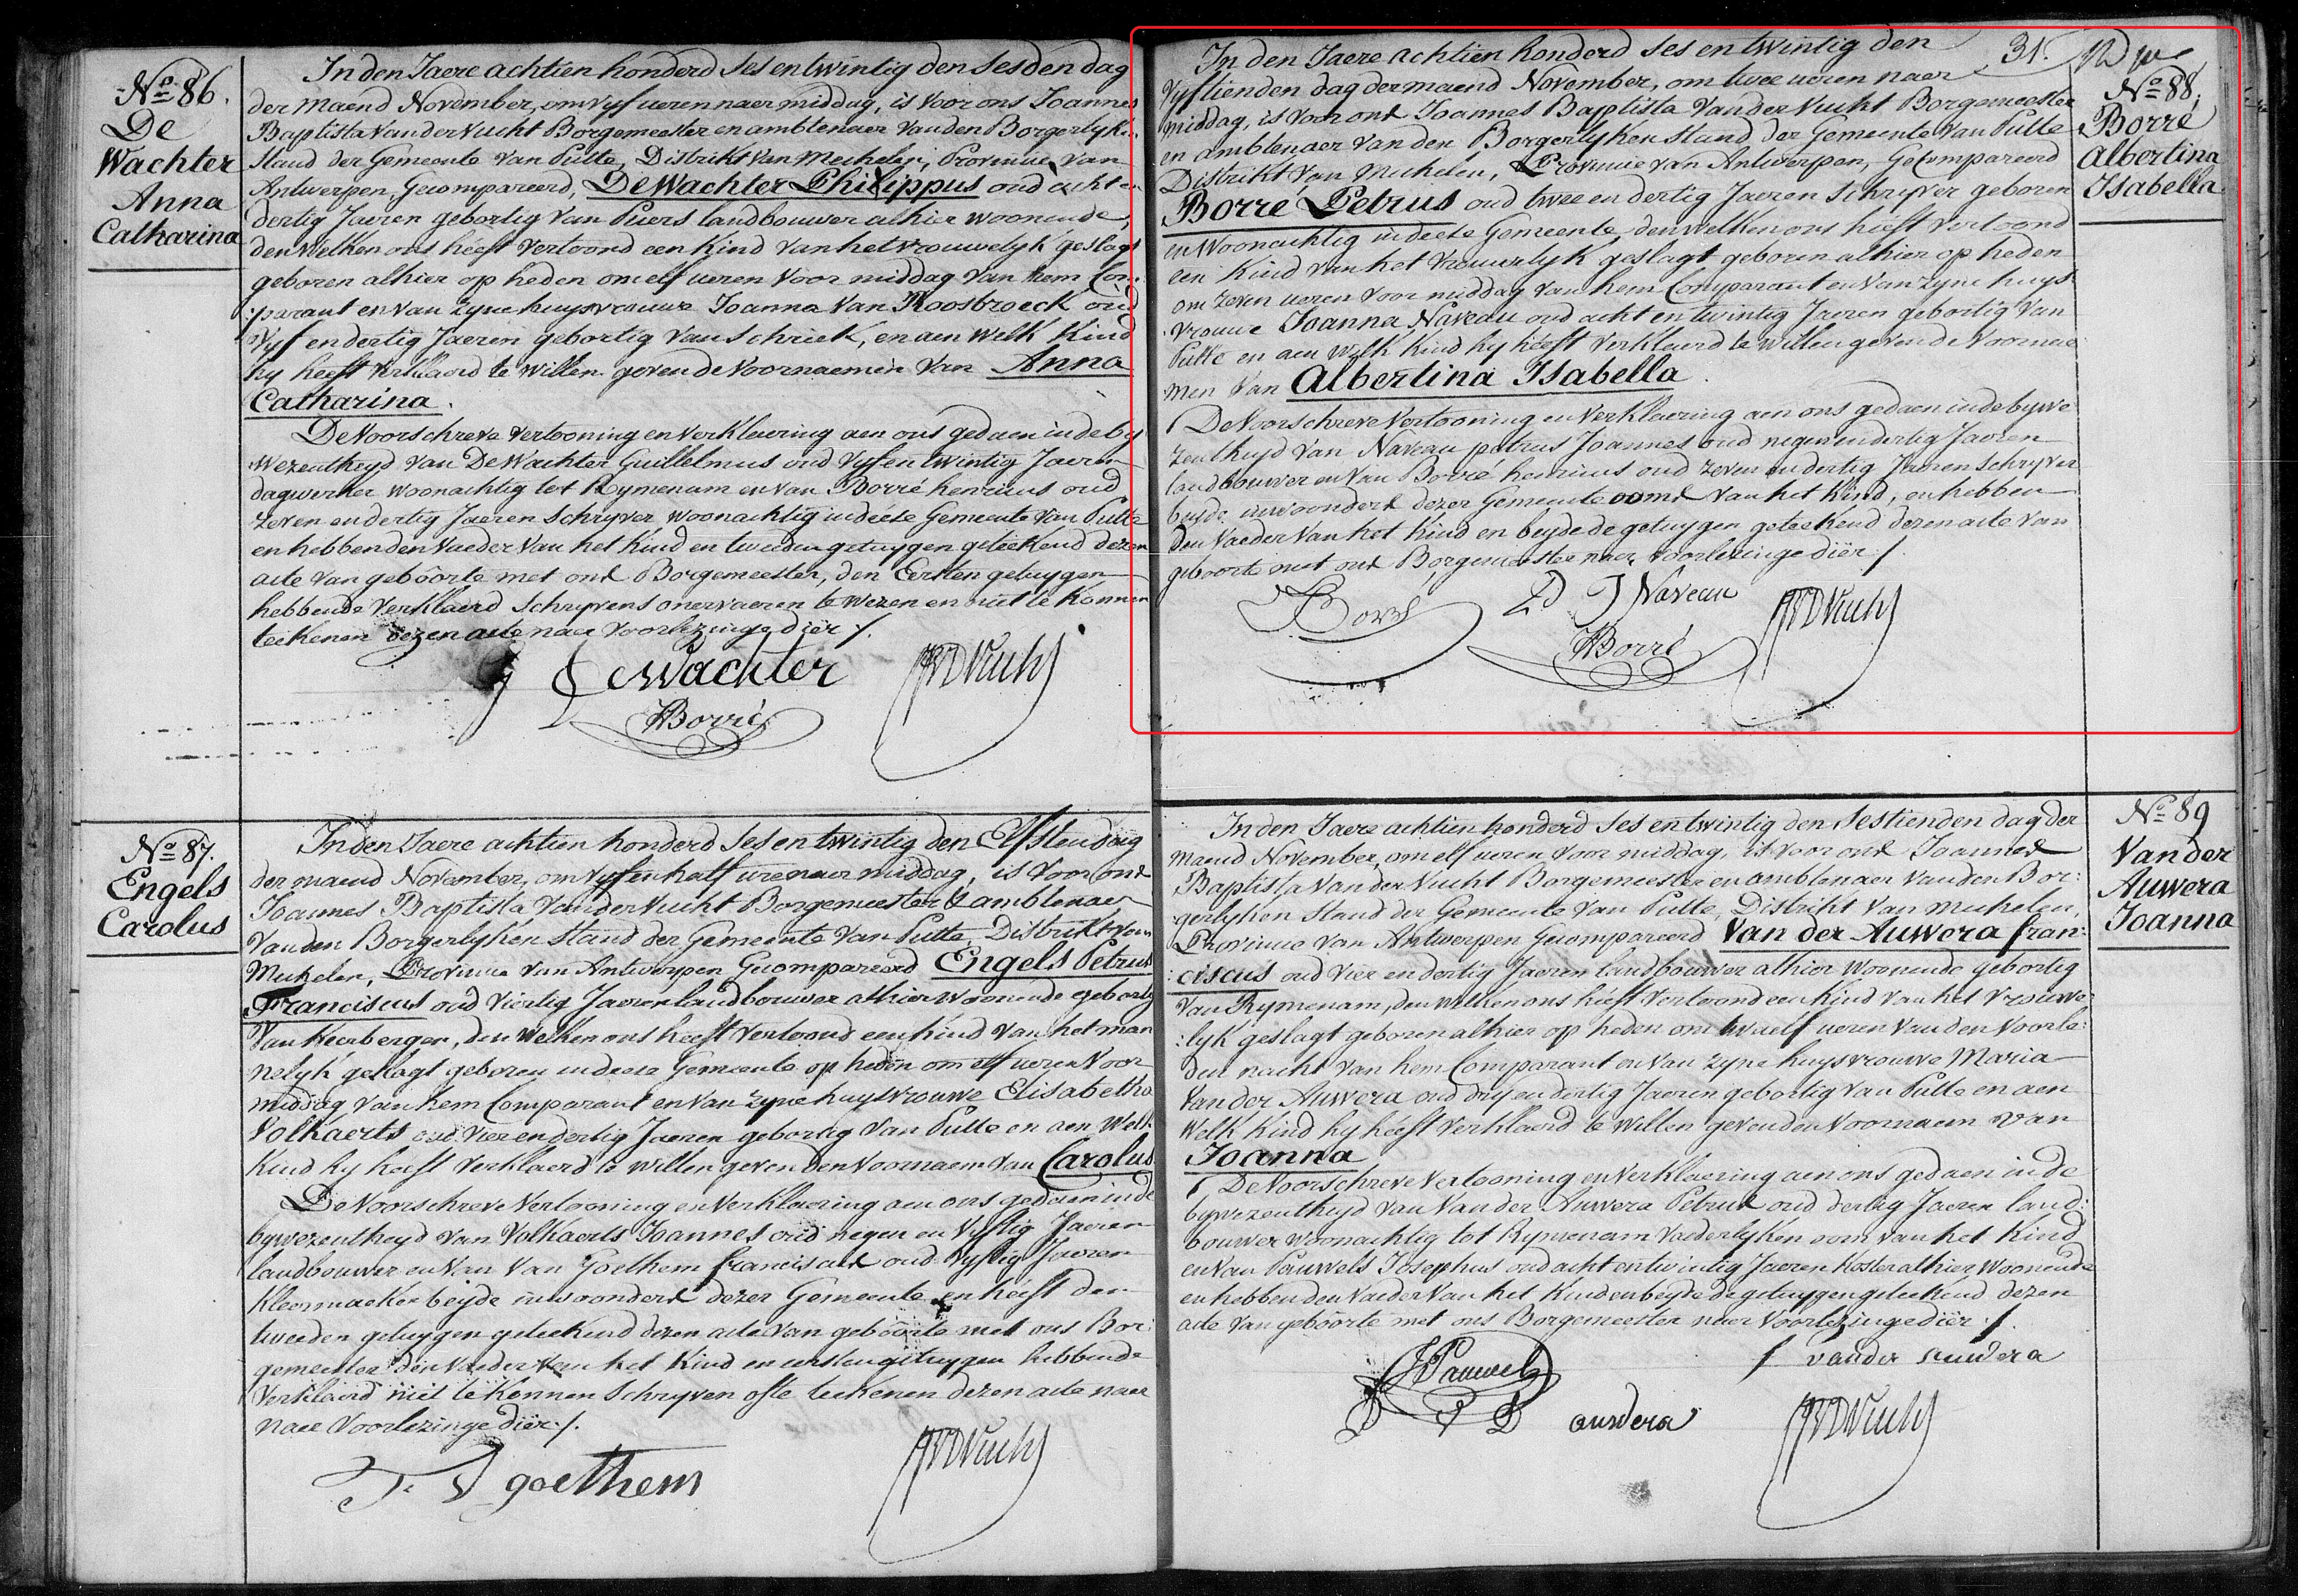 No. 86.
De
Wachter
Anna
Catharina
In den Jaere achtien honderd ses en twintig den sesden dag
der maend November, om vyf ueren naer middag, is voor ons Joannes
Baptista Van der Vucht Borgemeester en amblenaer van den Borgerlyken
stand der Gemeente van Putte, Distrikt van Mechelen, Provincie van
Antwerpen, Gecompareerd, De Wachter Philippus oud acht en
dertig Jaeren gebortig van Puers landbouwer alhier woonende,
den welken ons heeft vertoond een kind van het vrouwelyk geslagt
geboren alhier op heden om elf ueren voor middag van hem Com:
:parant en van zyne huysvrouwe Joanna Van Roosbroeck oud
vyf en dertig Jaeren gebortig van Schriek, en aen welk kind
hy heeft verklaerd te willen geven de voornaemen van Anna
Catharina.
De voorschreve vertooning en verklaering aen ons gedaen in de by
wezentheyd van De Wachter Guillelmus oud vyf en twintig Jaeren
dagwerker woonachtig tot Rymenam en van Borré henricus oud
zeven en dertig Jaeren schryver woonachtig in deéze Gemeente van Putte
en hebben den vaeder van het kind en tweeden getuygen geteekend dezen
acte van geboorte met ons Borgemeester, den Eersten getuygen
hebbende verklaerd schryvens onervaeren te wezen en niet te konnen
teekenen dezen acte naer voorlezinge dier /.
J DeWachter
JVDVucht
HBorré
No. 87.
Engels
Carolus
In den Jaere achtien honderd ses en twintig den Elfsten dag
der maend November, om vyf en half ure naer middag, is voor ons
Joannes Baptista Van der Vucht Borgemeester & amblenaer
van den Borgerlyken stand der Gemeente van Putte, Distrikt van
Mechelen, Provincie van Antwerpen Gecompareerd Engels Petrus
Franciscus oud viertig Jaeren landbouwer alhier woonende gebortig
van Keerbergen, den welken ons heeft vertoond een kind van het man
nelyk geslagt geboren in deeze Gemeente op heden om elf ueren voor
middag van hem Comparant en van zyne huysvrouwe Elisabetha
Volkaerts oud vier en dertig Jaeren gebortig van Putte en aen welk
kind hy heeft verklaerd te willen geven den voornaem van Carolus
De voorschreve vertooning en verklaering aen ons gedaen in de
bywezentheyd van Volkaerts Joannes oud negen en vyftig Jaeren
landbouwer en van Van Goethem franciscus oud vyftig Jaeren
kleermaeker beyde inwoonders dezer Gemeente en heeft den
tweeden getuygen geteekend dezen acte van geboorte met ons Bor:
gemeester den vaeder van het kind en eersten getuygen hebbende
verklaerd niet te konnen schryven ofte teekenen dezen acte naer
naer voorlezinge dier /.
F. V goethem
JVDVucht
31.
In den Jaere achtien honderd ses en twintig den
vyftienden dag der maend November, om twee ueren naer
middag, is voor ons Joannes Baptista Van der Vucht Borgemeester
en amblenaer van den Borgerlyken stand der Gemeente van Putte
Distrikt van Mechelen, Provincie van Antwerpen, Gecompareerd
Borré Petrus oud twee en dertig Jaeren schryver geboren
en woonachtig in deeze Gemeente, den welken ons heeft vertoond
een kind van het vrouwelyk geslagt geboren alhier op heden
om zeven ueren voor middag van hem Comparant en van zyne huys
vrouwe Joanna Naveau oud acht en twintig Jaeren gebortig van
Putte en aen welk kind hy heeft verklaerd te willen geven de voornae
men van Albertina Isabella.
De voorschreve vertooning en verklaering aen ons gedaen in de bywe
zentheyd van Naveau petrus Joannes oud negen en dertig Jaeren
landbouwer en van Borré henricus oud zeven en dertig Jaeren schryver
beyde inwoonders dezer Gemeente ooms van het kind, en hebben
den vaeder van het kind en beyde de getuygen geteekend dezen acte van
geboorte met ons Borgemeester naer voorlezinge dier /.
Borré
P J Naveau
JVDVucht
HBorré
No. 88.
Borré
Albertina
Isabella
In den Jaere achtien honderd ses en twintig den sestienden dag der
maend November, om elf ueren voor middag, is voor ons Joannes
Baptista Van der Vucht Borgemeester en amblenaer van den Bor:
gerlyken stand der Gemeente van Putte, Distrikt van Mechelen,
Provincie van Antwerpen Gecompareerd Van der Auwera fran:
:ciscus oud vier en dertig Jaeren landbouwer alhier woonende gebortig
van Rymenam, den welken ons heeft vertoond een kind van het vrouwe
:lyk geslagt geboren alhier op heden om twaelf ueren van den voorle:
den nacht van hem Comparant en van zyne huysvrouwe Maria
Van der Auwera oud dry en dertig Jaeren gebortig van Putte en aen
welk kind hy heeft verklaerd te willen geven den voornaem van
Joanna
De voorschreve vertooning en verklaering aen ons gedaen in de
bywezentheyd van Van der Auwera Petrus oud dertig Jaeren land:
bouwer woonachtig tot Rymenam vaederlyken oom van het kind
en van Pauwels Josephus oud acht en twintig Jaeren koster alhier woonende
en hebben den vaeder van het kind en beyde de getuygen geteekend dezen
acte van geboorte met ons Borgemeester naer voorlezinge dier /.
JPauwels
f vander auwera
P V D auwera
JVDVucht
No. 89
Van der
Auwera
Joanna